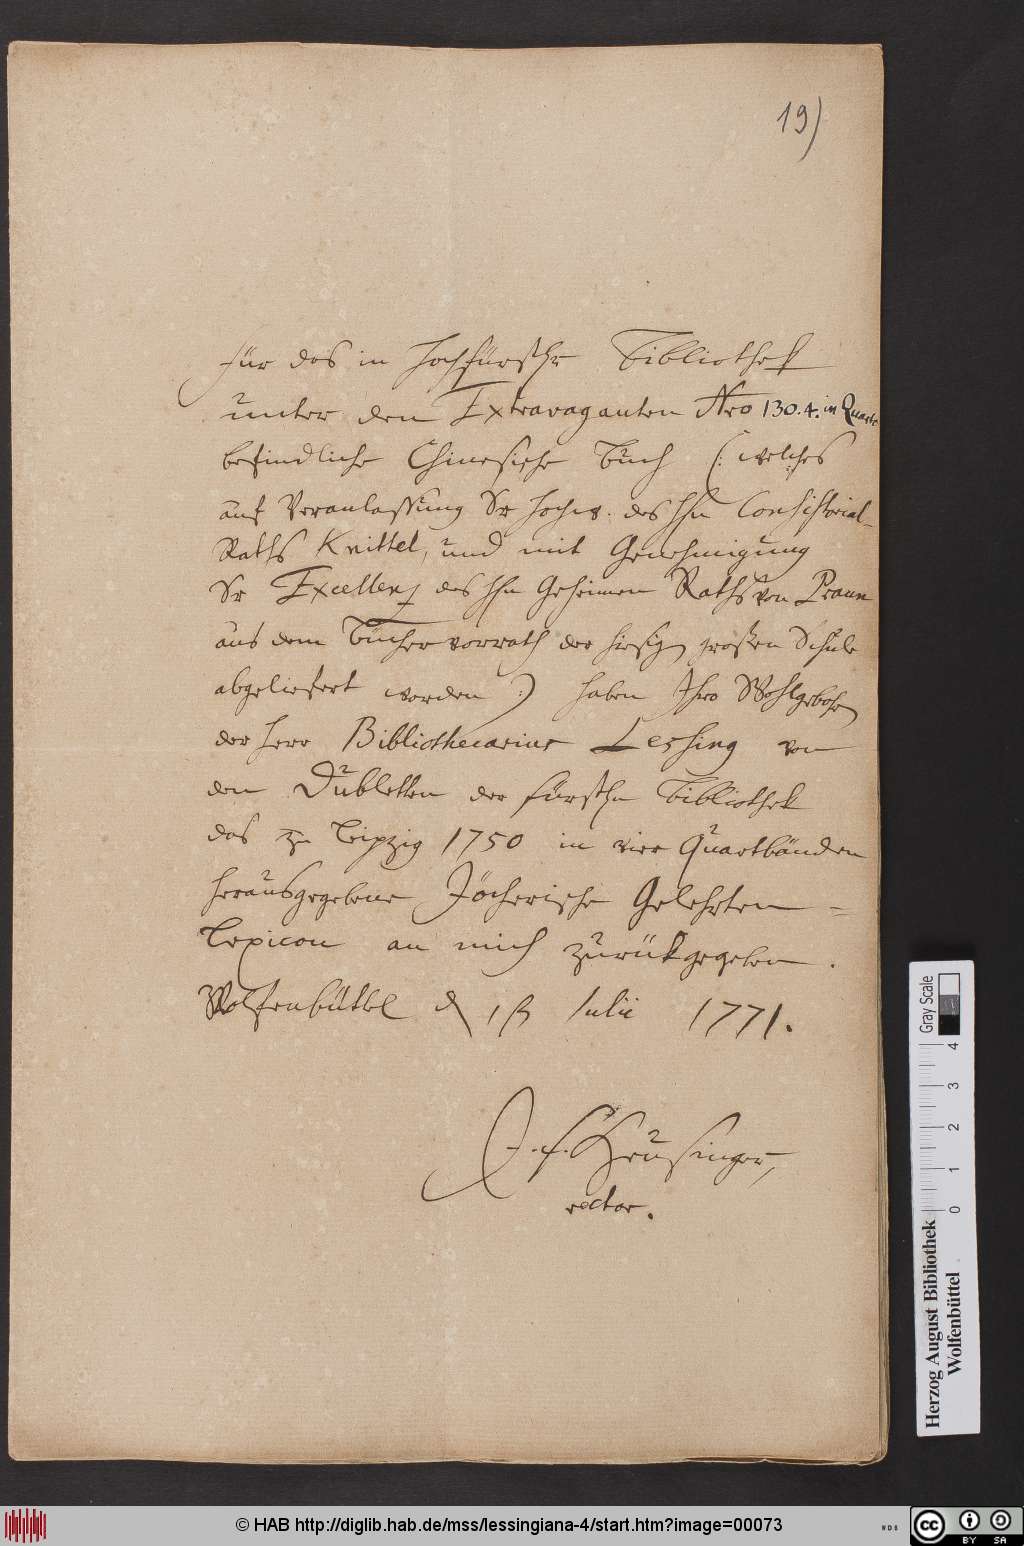 19)
Für das in Hochfürstlr Bibliothek
unter den Extravaganten Nro 130.4. in Quarto
befindliche Chinesische Buch (: welches
auf Veranlassung Sr Hochw. des Hn Consistorial-
Raths Knittel, und mit Genehmigung
Sr Excellenz des Hn Geheimen Raths von Praun
aus dem Büchervorrath der hiesign großen Schule
abgeliefert worden :) haben Ihro Wohlgebohrn
der Herr Bibliothecarius Lessing von
den Dubletten der fürstln Bibliothek
das zu Leipzig 1750 in vier Quartbänden
herausgegebene Jöcherische Gelehrten=
Lexicon an mich zurückgegeben.
Wolfenbüttel d Julii 1771.
J. F. Heusinger,
rector.
Gray Scale
4 3 2 1 0
Herzog August Bibliothek
Wolfenbüttel
© HAB http://diglib.hab.de/mss/lessingiana-4/start.htm?image=00073
cc BY SA